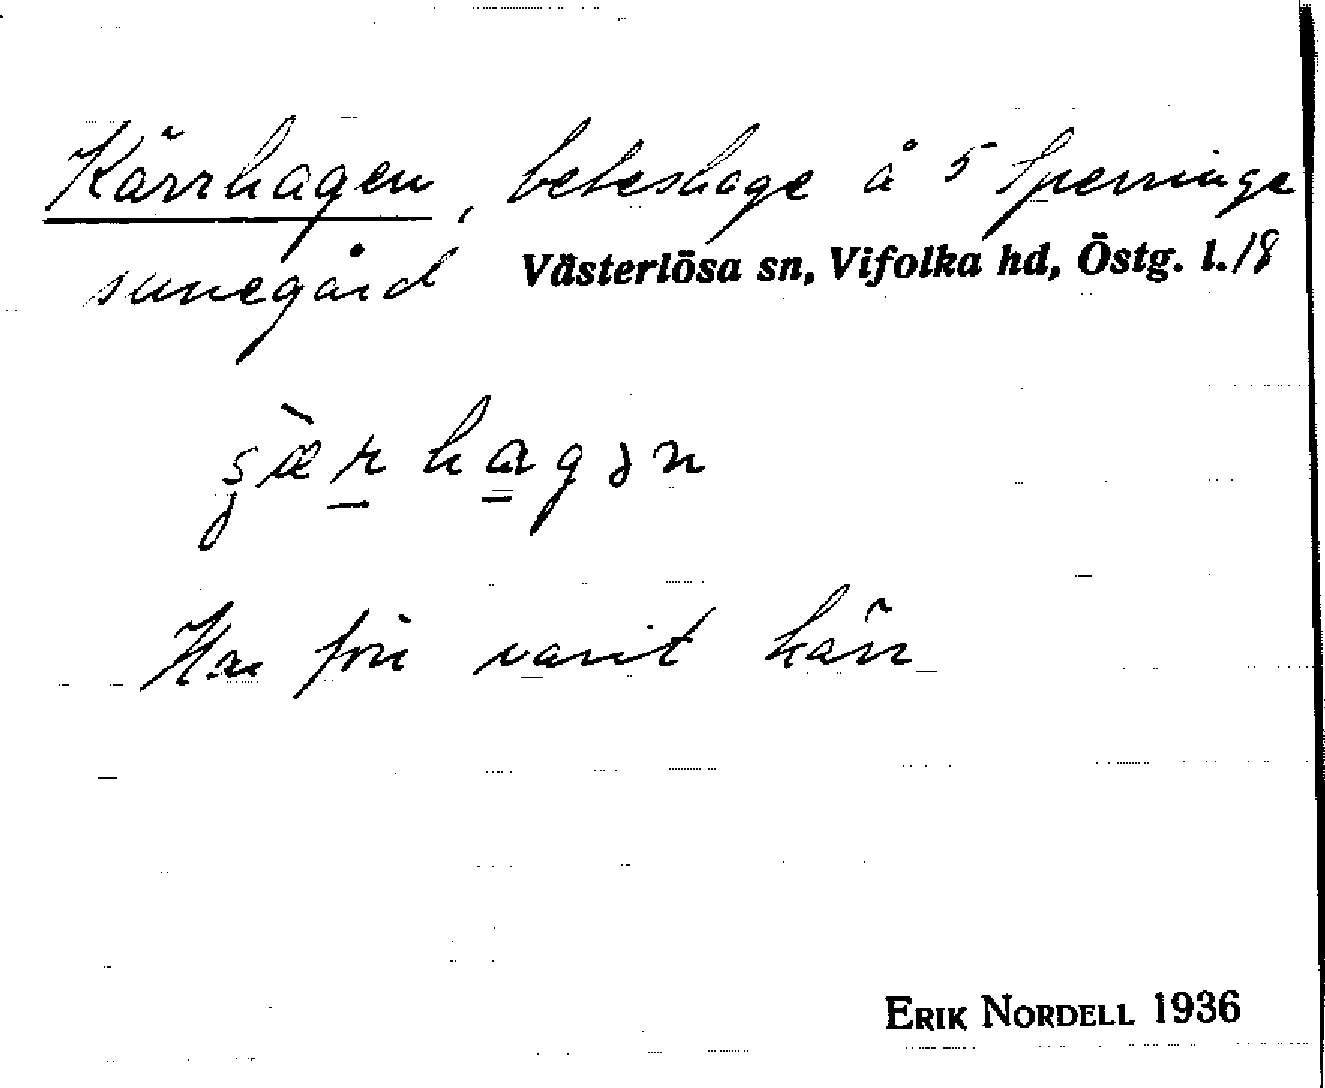 Kärrhagen, beteshage å 5 Sperringe
sunegård Västerlösa sn, Vifolka hd, Östg. l. 18
Har förr varit kärr
ERIK NORDELL 1936